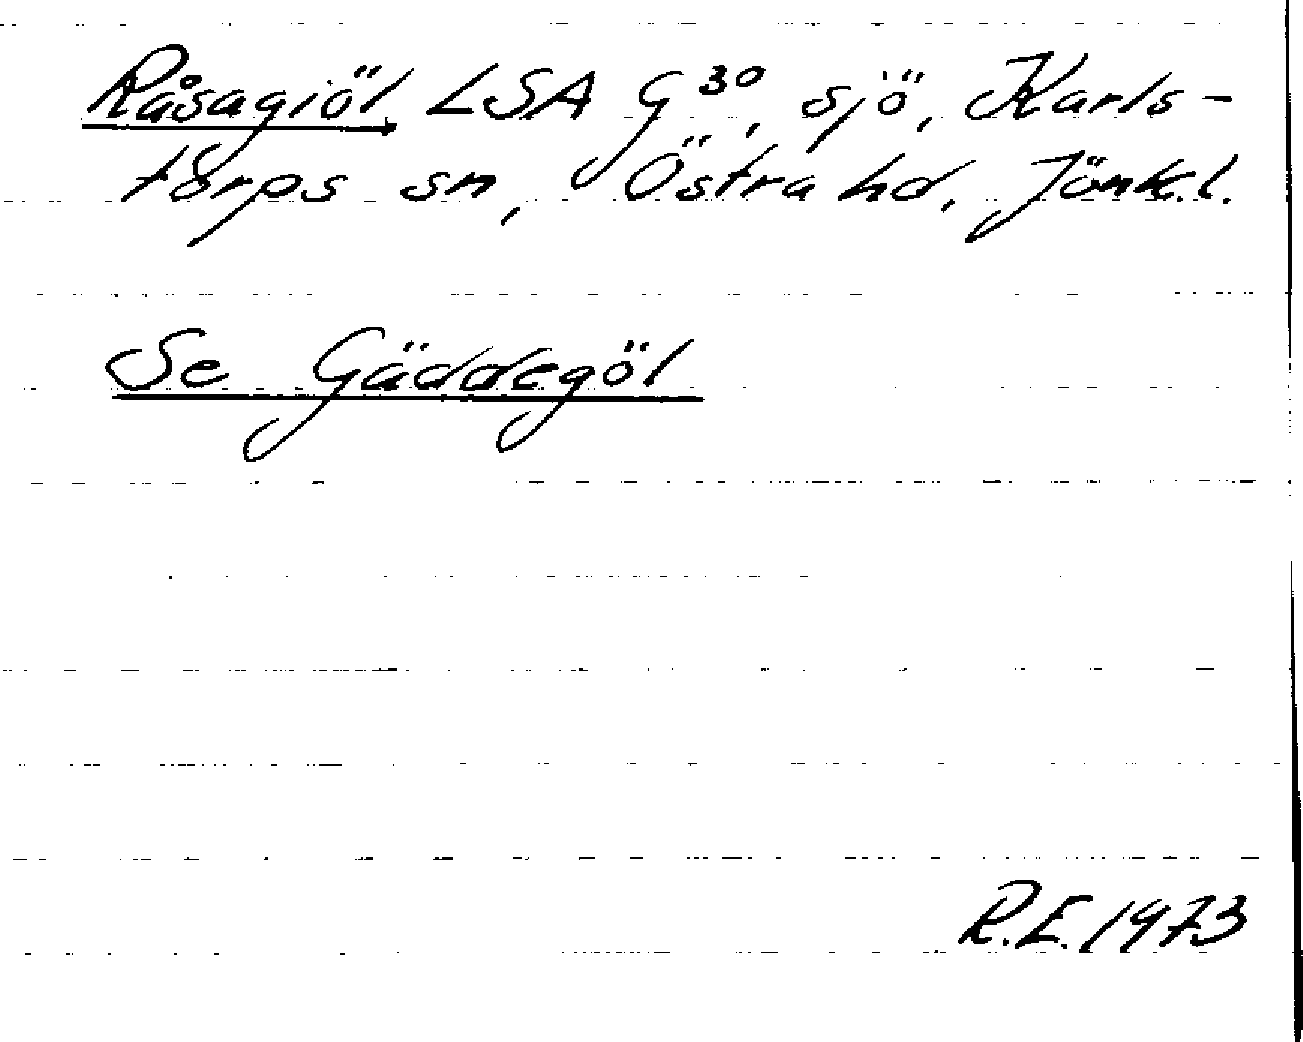 Råsagiöl LSA G³⁰, sjö, Karls-
torps sn, Östra hd, Jönk.l.
Se Gäddegöl
R.E. 1973